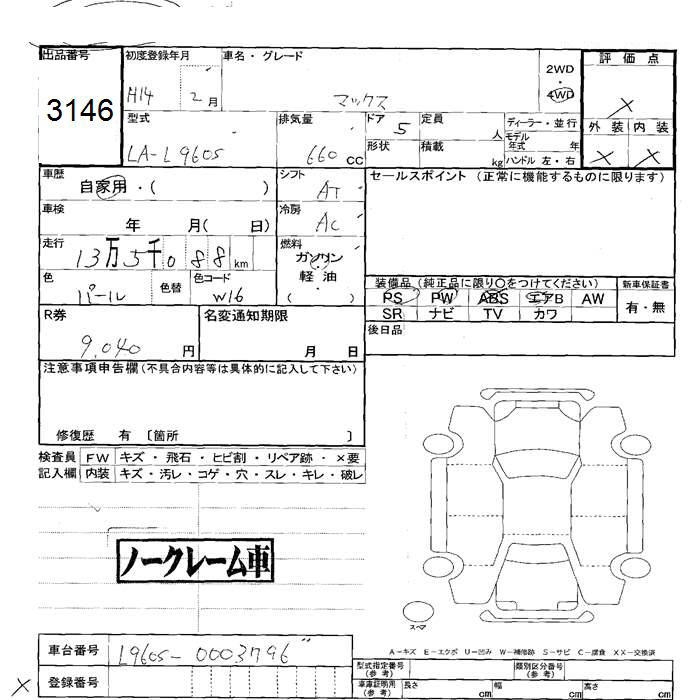 出品番号 初度登録年月 車名・グレード 2WD・4WD 評価点
3146 H14 2月 マックス ×
型式 排気量 ドア 定員 ディーラー・並行 外装 内装
LA-L960S 660cc 5 人 モデル年式 年 × ×
形状 積載 kg ハンドル 左・右
車歴 シフト セールスポイント (正常に機能するものに限ります)
自家用・( ) AT
車検 冷房
年 月( 日) AC
走行 燃料
13万5千088km ガソリン・軽油
色 色替 色コード ( )
パール W16
装備品(純正品に限り○をつけてください) 新車保証書
PS PW ABS エアB AW 有・無
SR ナビ TV カワ
R券 名変通知期限 後日品
9,040円 月 日
注意事項申告欄(不具合内容等は具体的に記入して下さい)
修復歴 有 〔箇所 〕
検査員 FW キズ・飛石・ヒビ割・リペア跡・×要
記入欄 内装 キズ・汚レ・コゲ・穴・スレ・キレ・破レ
ノークレーム車
スペア
A-キズ E-エクボ U-凹み W-補修跡 S-サビ C-腐食 XX-交換済
車台番号 L960S-0003796
型式指定番号(参考) 類別区分番号(参考)
× 登録番号
車庫証明用(参考) 長さ cm 幅 cm 高さ cm